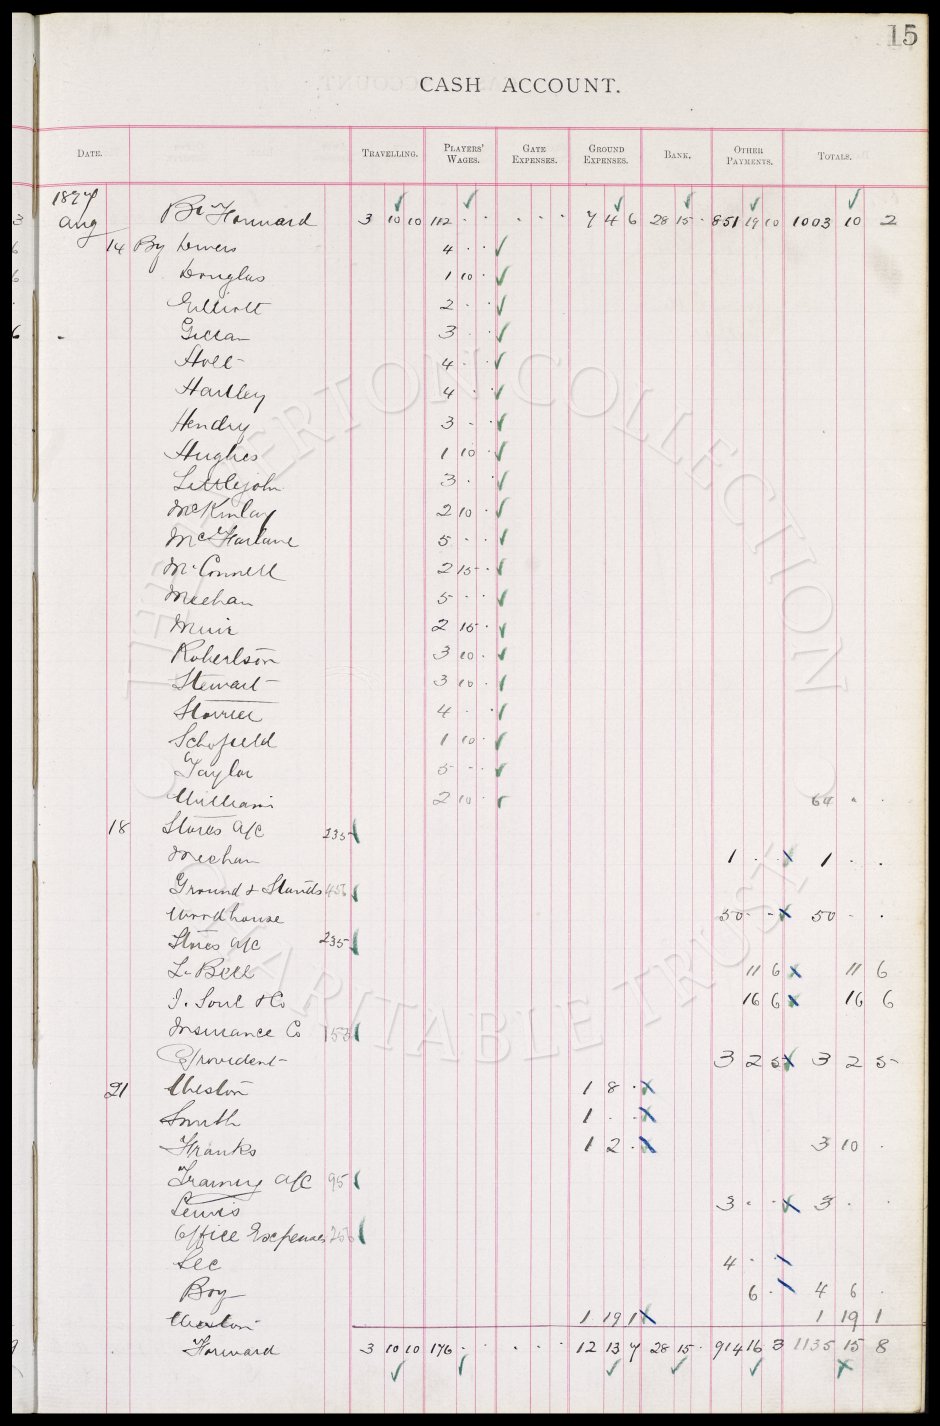 15
CASH ACCOUNT.
DATE. TRAVELLING. PLAYERS' WAGES. GATE EXPENSES. GROUND EXPENSES. BANK. OTHER PAYMENTS. TOTALS.
1897
Aug Bt Forward 3 10 10 112 · · · · · 7 4 6 28 15 · 851 19 10 1003 10 2
14 By Divers 4 · ·
Douglas 1 10 ·
Elliott 2 · ·
Gillan 3 · ·
Holt 4 · ·
Hartley 4 · ·
Hendry 3 · ·
Hughes 1 10 ·
Littlejohn 3 · ·
McKinlay 2 10 ·
McFarlane 5 · ·
McConnell 2 15 ·
Meehan 5 · ·
Muir 2 15 ·
Robertson 3 10 ·
Stewart 3 10 ·
Storrier 4 · ·
Schofield 1 10 ·
Taylor 5 · ·
Williams 2 10 · 64 · ·
18 Stores a/c 235
Meehan 1 · · 1 · ·
Ground & Stands 456
Woodhouse 50 - - 50 - ·
Stores a/c 235
L. Bell 11 6 11 6
J. Soul & Co 16 6 16 6
Insurance Co 153
Provident 3 2 5 3 2 5
21 Weston 1 8 ·
Smith 1 · ·
Franks 1 2 · 3 10 ·
Training a/c 95
Lewis 3 · · 3 · ·
Office Expenses 256
Sec 4 · ·
Boy 6 · 4 6 ·
Weston 1 19 1 1 19 1
Forward 3 10 10 176 · · · · · 12 13 7 28 15 · 914 16 3 1135 15 8
THE EVERTON COLLECTION
CHARITABLE TRUST